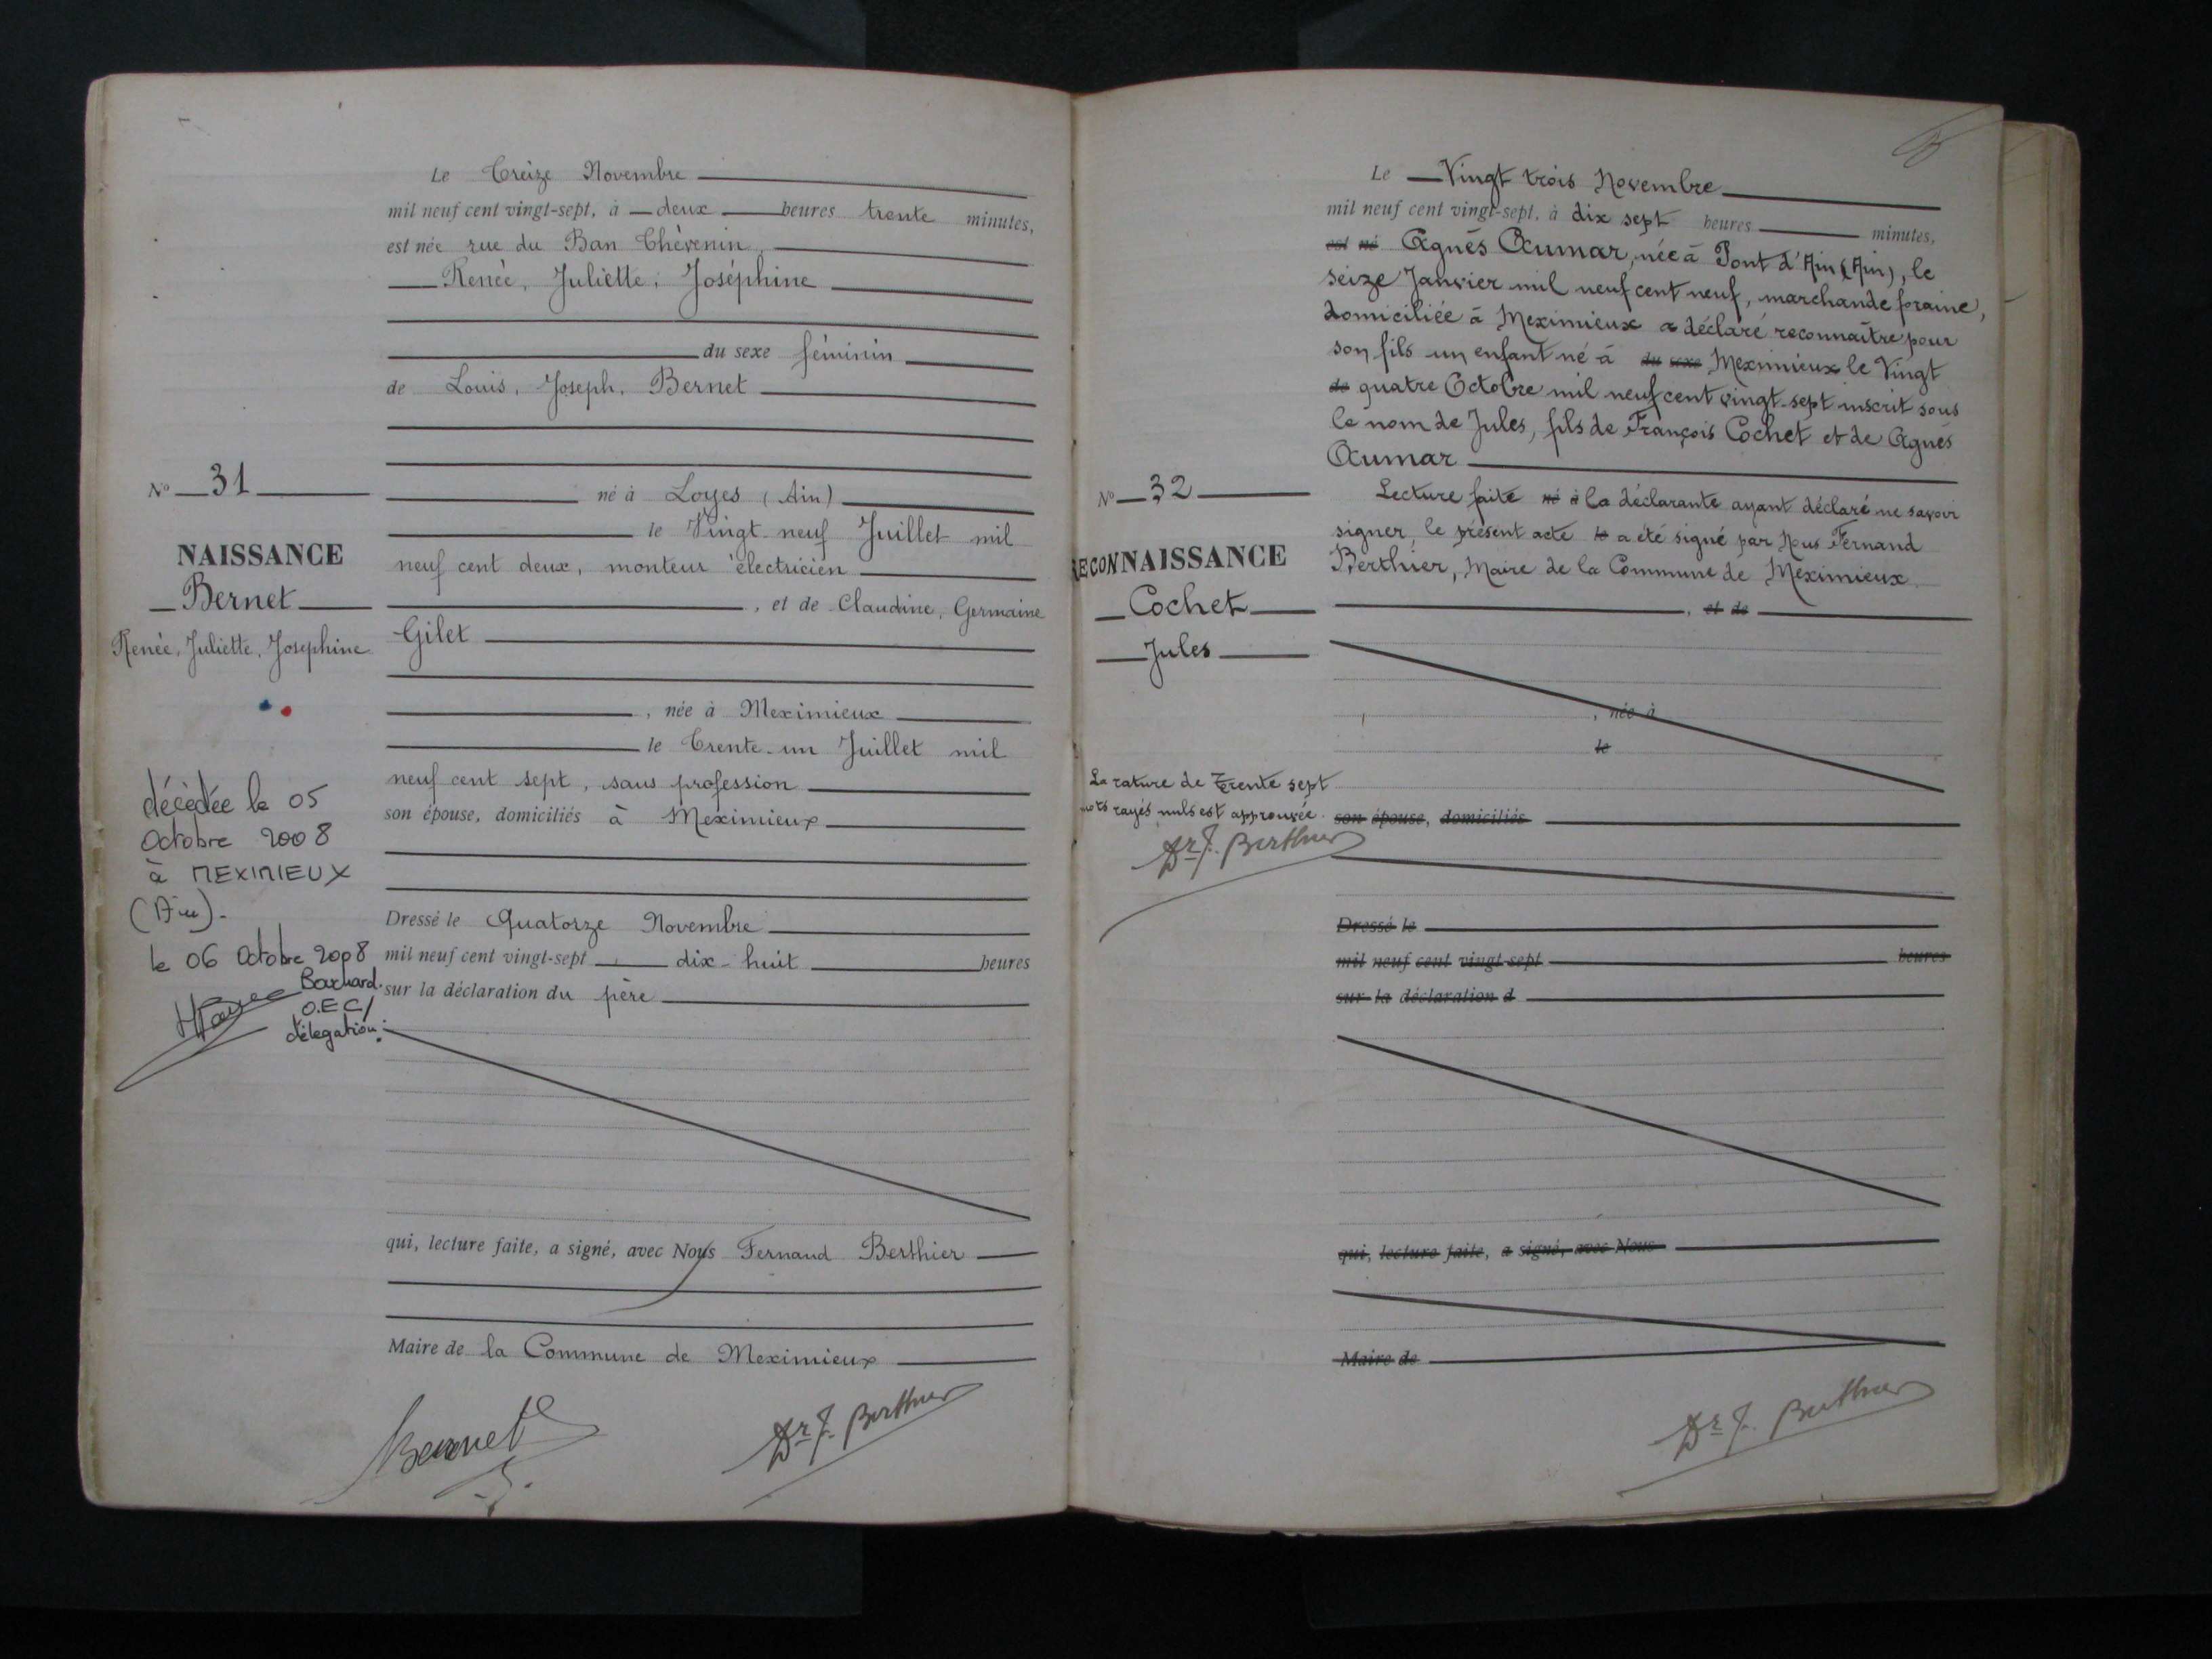 Le Treize Novembre
mil neuf cent vingt-sept, à deux heures trente minutes,
est née rue du Ban Thèvenin,
Renée, Juliette, Joséphine
du sexe féminin
de Louis, Joseph, Bernet
né à Loyes (Ain)
le Vingt-neuf Juillet mil
neuf cent deux, monteur électricien
, et de Claudine, Germaine
Gilet
, née à Meximieux
le Trente-un Juillet mil
neuf cent sept, sans profession
son épouse, domiciliés à Meximieux
Dressé le Quatorze Novembre
mil neuf cent vingt-sept dix-huit heures
sur la déclaration du père
qui, lecture faite, a signé, avec Nous Fernand Berthier
Maire de la Commune de Meximieux
Bernet
Dr F. Berthier
No 31
NAISSANCE
Bernet
Renée, Juliette, Josephine
décèdée le 05
Octobre 2008
à MEXIMIEUX
(Ain).
le 06 Octobre 2008
O.EC/
délegation:
Le Vingt trois Novembre
mil neuf cent vingt-sept, à dix sept heures minutes,
est né Agnés Aumar, née à Pont d'Ain (Ain), le
seize Janvier mil neuf cent neuf, marchande foraine,
domiciliée à Meximieux a déclaré reconnaître pour
son fils un enfant né à du sexe Meximieux le Vingt
de quatre Octobre mil neuf cent vingt-sept inscrit sous
le nom de Jules, fils de François Cochet et de Agnés
Aumar
Lecture faite né à la déclarante ayant déclaré ne savoir
signer le présent acte le a été signé par Nous Fernand
Berthier, Maire de la Commune de Meximieux
, et de
, née à
le
son épouse, domiciliés
Dressé le
mil neuf cent vingt-sept heures
sur la déclaration d
qui, lecture faite, a signé, avec Nous
Maire de
Dr F. Berthier
No 32
RECONNAISSANCE
Cochet
Jules
La rature de Trente sept
mots rayés nuls est approuvée.
Dr F. Berthier